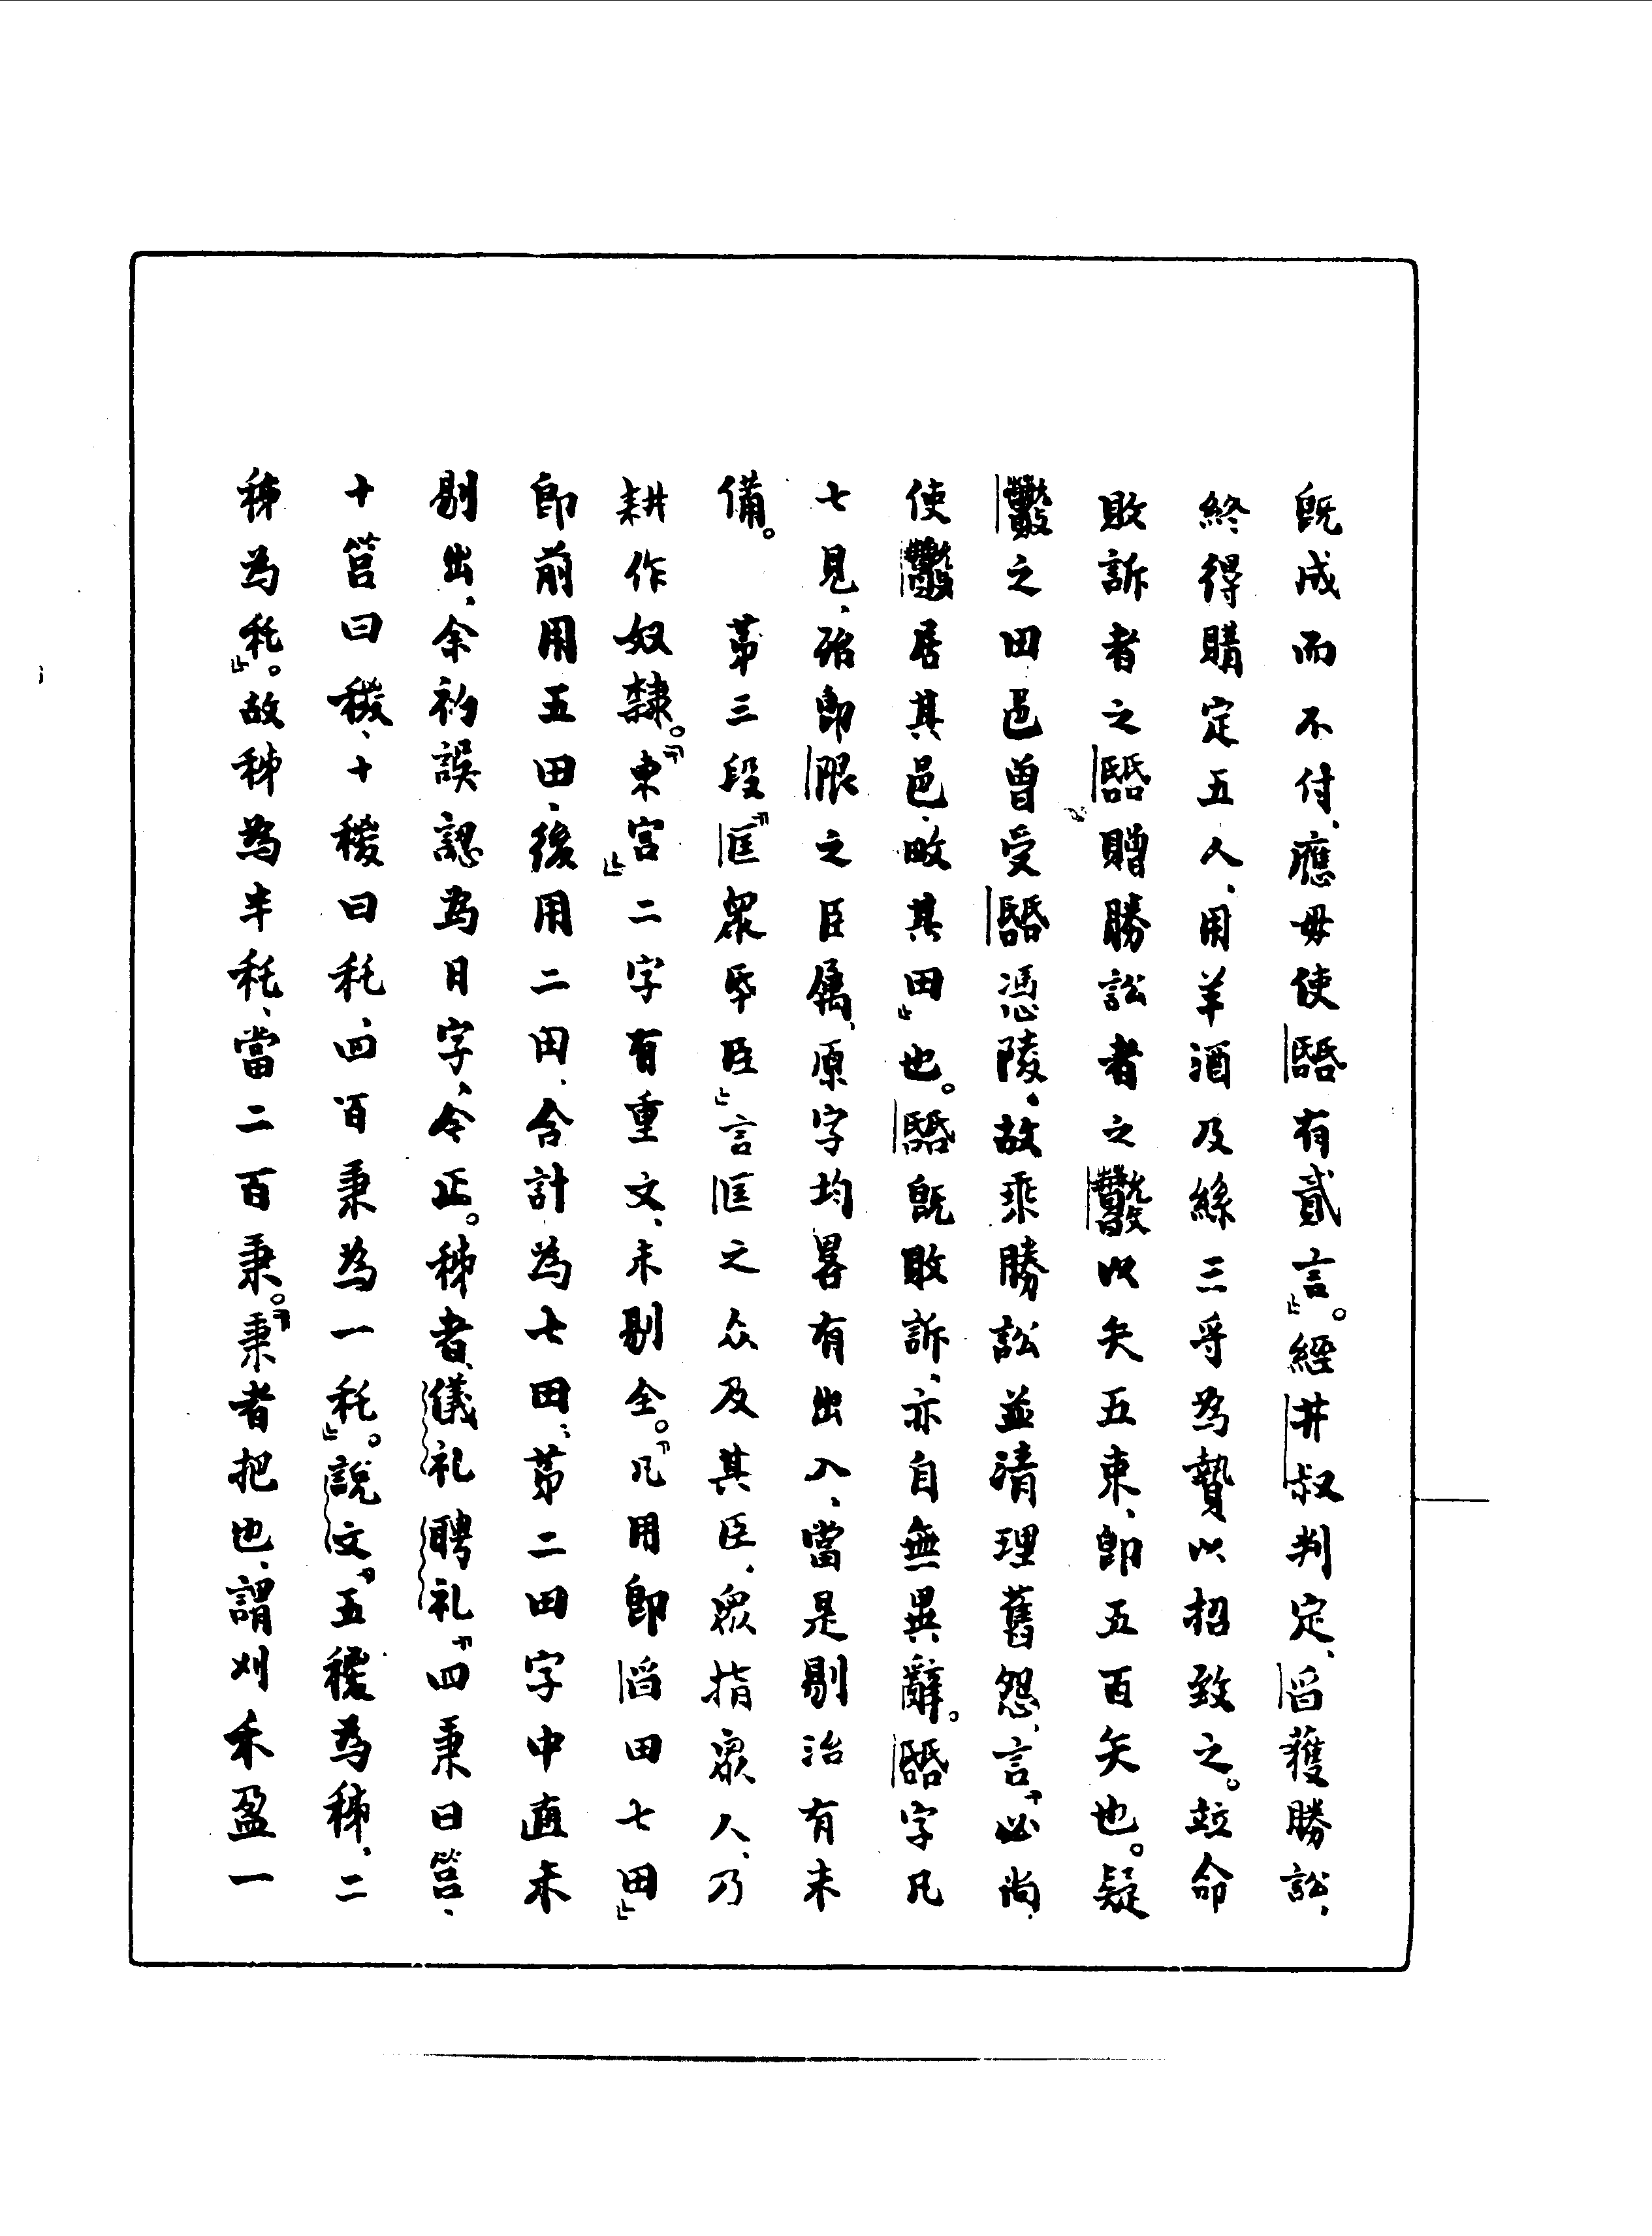 既成而不付,應毋使有貳言』。經井叔判定,舀獲勝訟,
終得購定五人,用羊酒及絲三寽為贄以招致之。竝命
敗訴者之贈勝訟者之以矢五束,即五百矢也。疑
之田邑曾受憑陵,故乘勝訟並清理舊怨,言『必尚
使居其邑,畋其田』也。既敗訴,亦自無異辭。字凡
七見,殆即限之臣屬,原字均畧有出入,當是剔治有未
備。
第三段『匡眾氒臣』言匡之众及其臣,眾指眾人,乃
耕作奴隸。『東宮』二字有重文,未剔全。『凡用即舀田七田』
即前用五田,後用二田,合計為七田,第二田字中直未
剔出,余初誤認為日字,今正。秭者,儀礼聘礼『四秉曰筥,
十筥曰稯,十稯曰秅,四百秉為一秅』。說文『五稯為秭,二
秭為秅』。故秭為半秅,當二百秉。『秉者把也,謂刈禾盈一